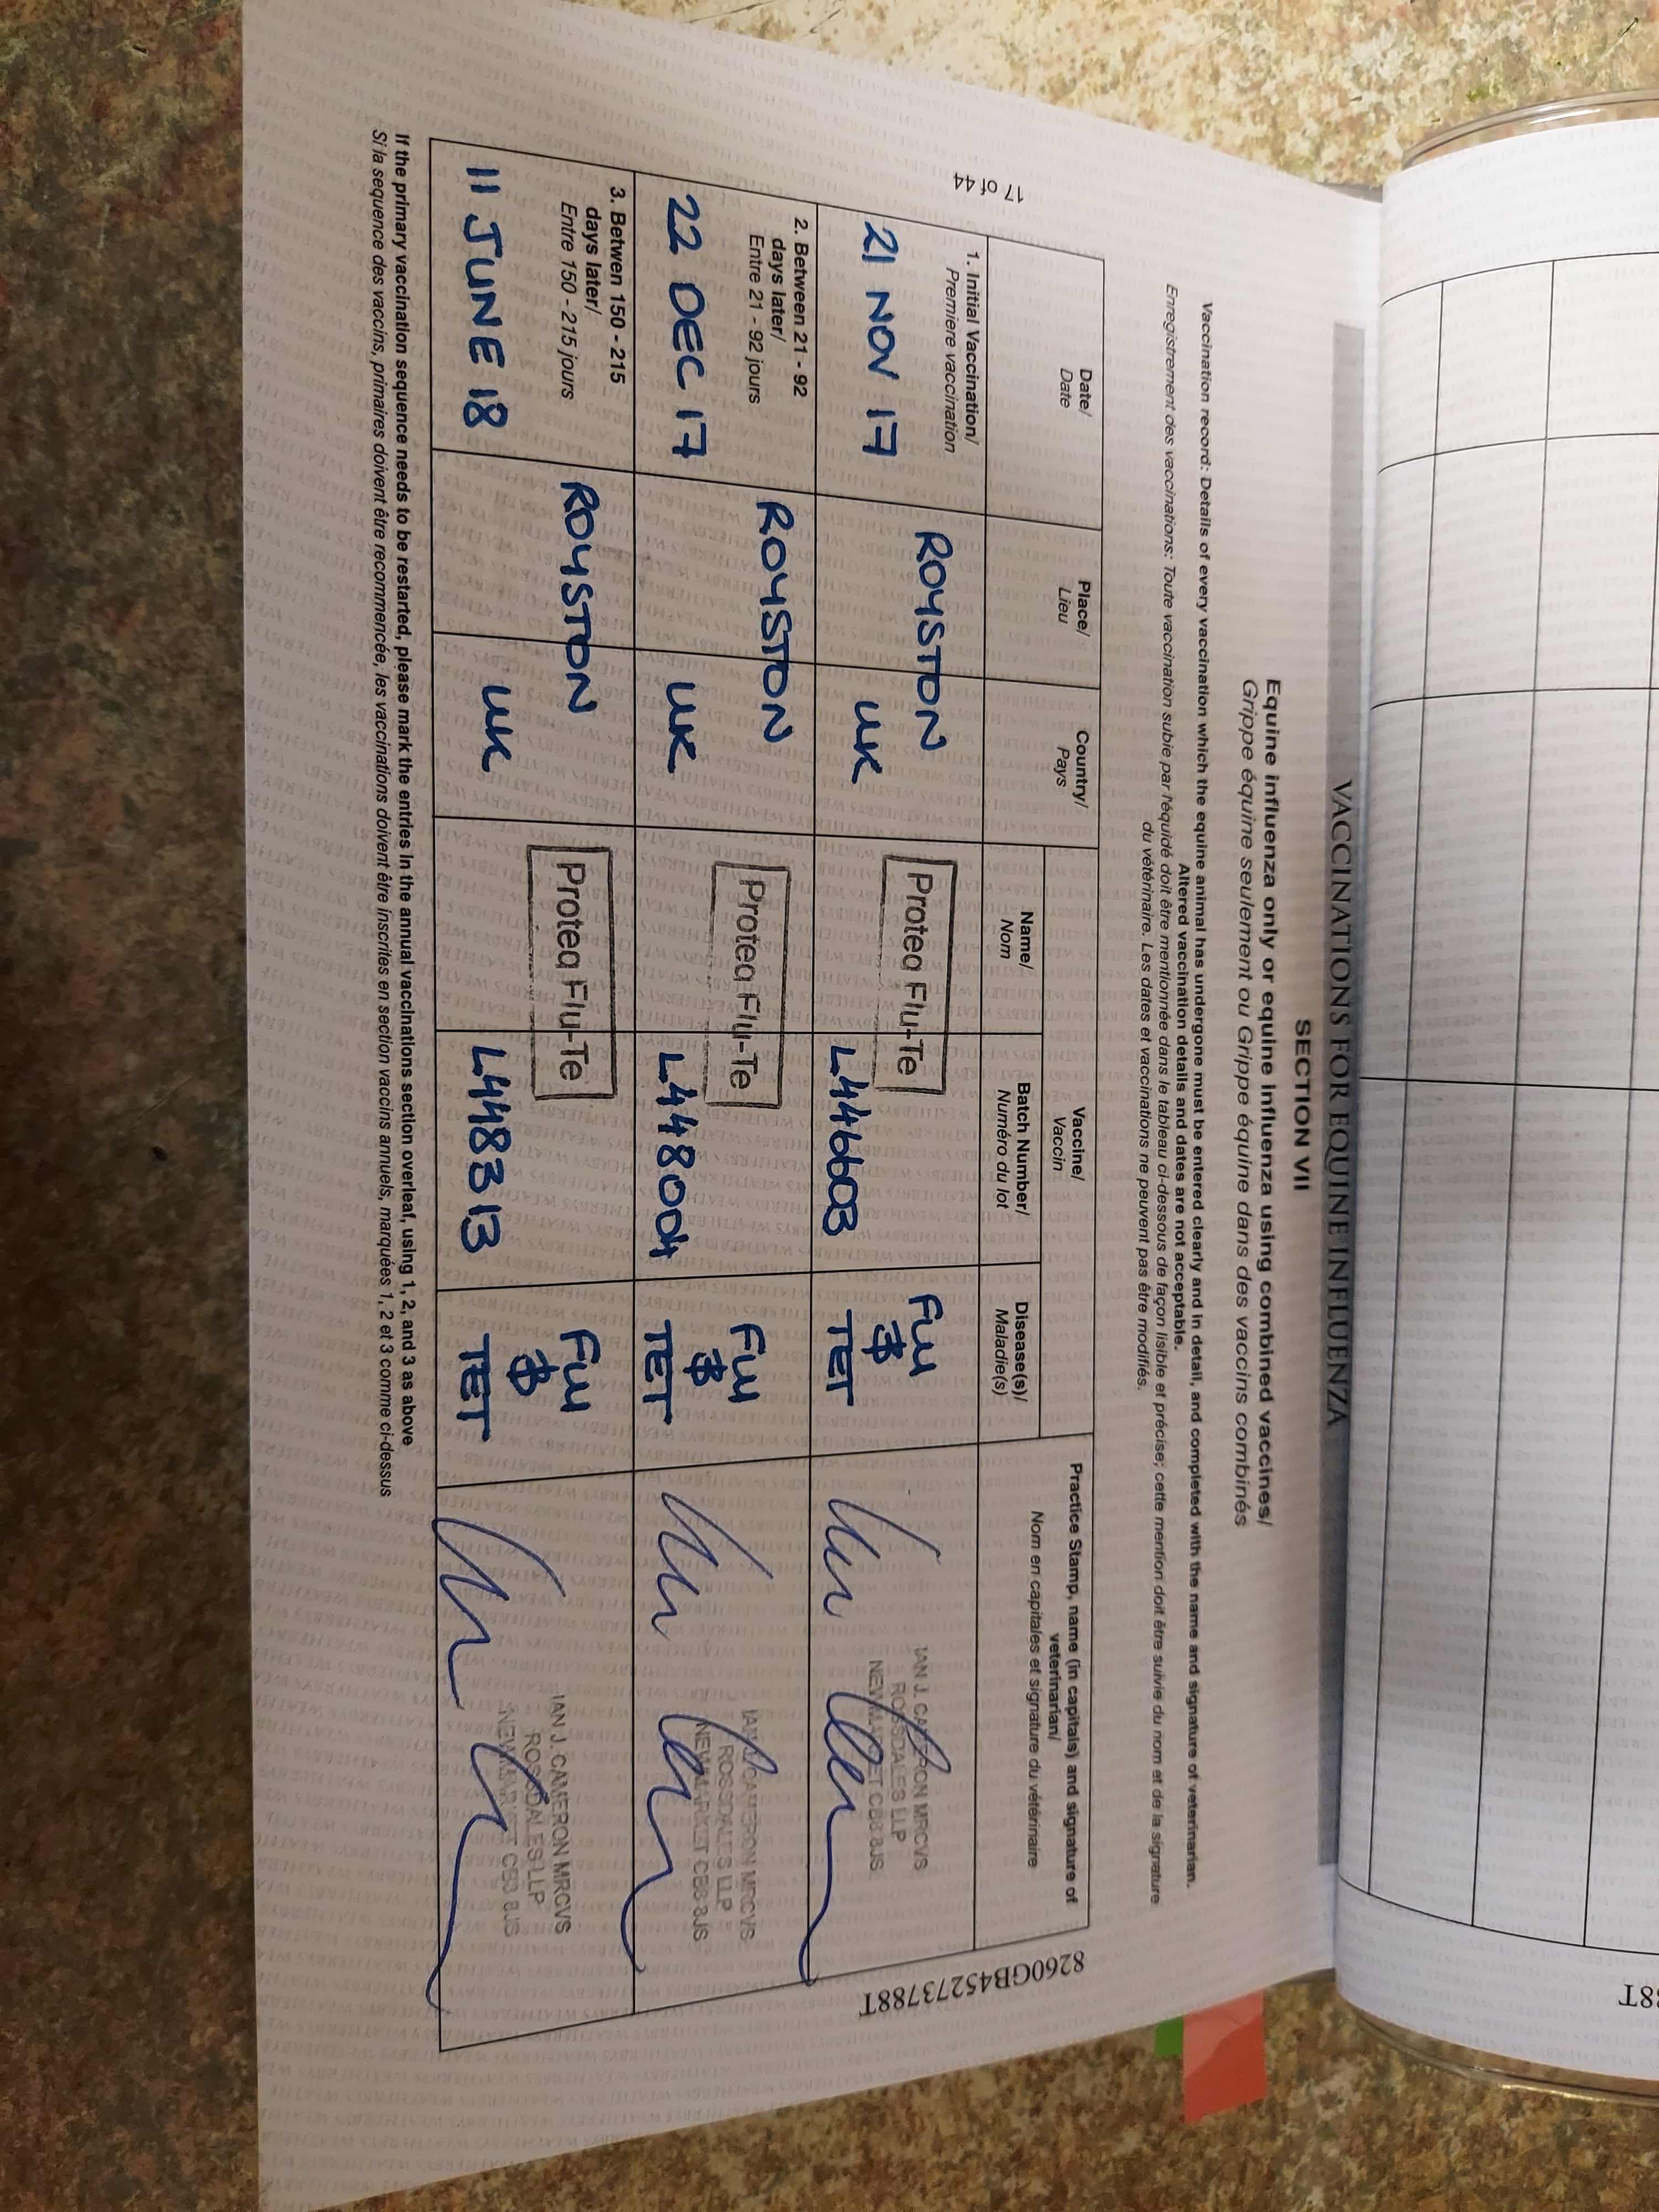 VACCINATIONS FOR EQUINE INFLUENZA
SECTION VII
Equine influenza only or equine influenza using combined vaccines/
Grippe équine seulement ou Grippe équine dans des vaccins combinés
Vaccination record: Details of every vaccination which the equine animal has undergone must be entered clearly and in detail, and completed with the name and signature of veterinarian.
Altered vaccination details and dates are not acceptable.
Enregistrement des vaccinations: Toute vaccination subie par l'équidé doit être mentionnée dans le tableau ci-dessous de façon lisible et précise; cette mention doit être suivie du nom et de la signature
du vétérinaire. Les dates et vaccinations ne peuvent pas être modifiés.
Date/
Date
Place/
Lieu
Country/
Pays
Vaccine/
Vaccin
Name/
Nom
Batch Number/
Numéro du lot
Disease(s)/
Maladie(s)
Practice Stamp, name (in capitals) and signature of
veterinarian/
Nom en capitales et signature du vétérinaire
1. Initial Vaccination/
Premiere vaccination
21 NOV 17
ROYSTON
UK
Proteq Flu-Te
L446603
FLU
&
TET
IAN J. CAMERON MRCVS
ROSSDALES LLP
NEWMARKET CB8 8JS
2. Between 21 - 92
days later/
Entre 21 - 92 jours
22 DEC 17
ROYSTON
UK
Proteq Flu-Te
L448004
FLU
&
TET
IAN J. CAMERON MRCVS
ROSSDALES LLP
NEWMARKET CB8 8JS
3. Betwen 150 - 215
days later/
Entre 150 - 215 jours
11 JUNE 18
ROYSTON
UK
Proteq Flu-Te
L448313
FLU
&
TET
IAN J. CAMERON MRCVS
ROSSDALES LLP
NEWMARKET CB8 8JS
If the primary vaccination sequence needs to be restarted, please mark the entries in the annual vaccinations section overleaf, using 1, 2, and 3 as above
Si la sequence des vaccins, primaires doivent être recommencée, les vaccinations doivent être inscrites en section vaccins annuels, marquées 1, 2 et 3 comme ci-dessus
17 of 44
8260GB45273788T
88T